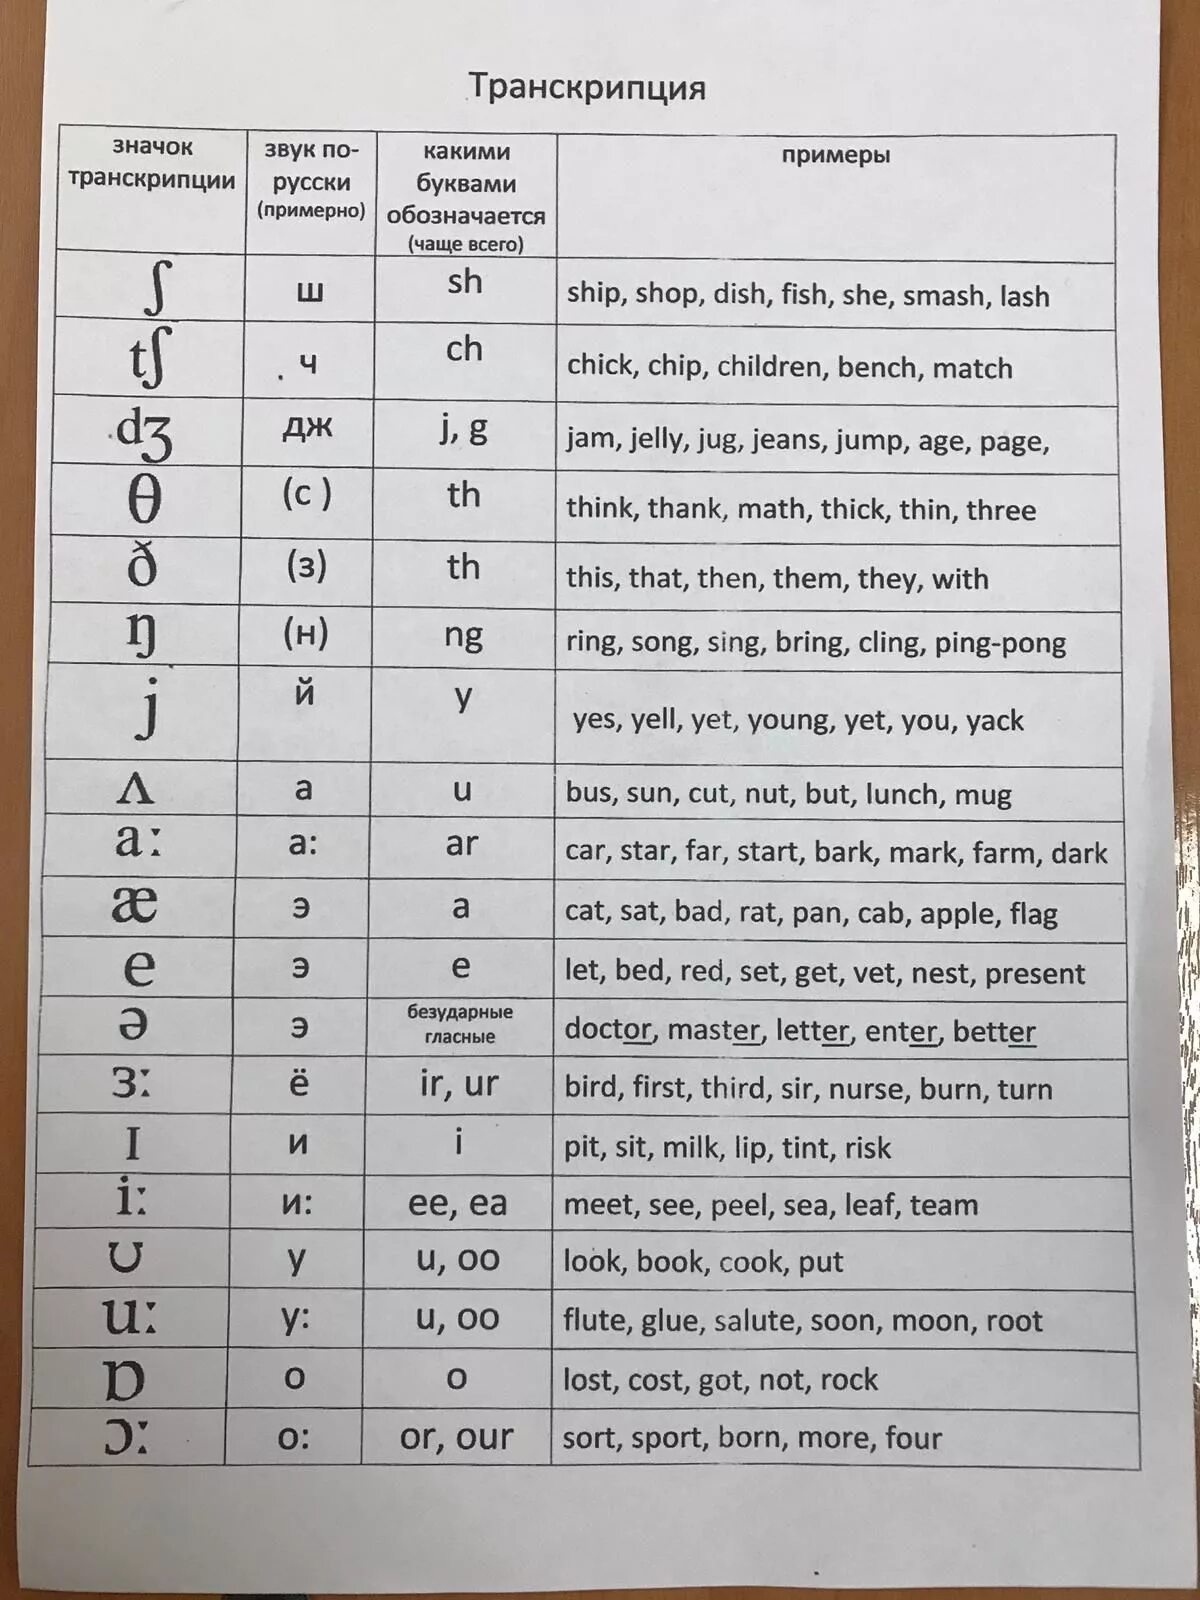 Транскрипция
значок транскрипции звук по-русски (примерно) какими буквами обозначается (чаще всего) примеры
ʃ ш sh ship, shop, dish, fish, she, smash, lash
tʃ ч ch chick, chip, children, bench, match
dʒ дж j, g jam, jelly, jug, jeans, jump, age, page,
θ (с ) th think, thank, math, thick, thin, three
ð (з) th this, that, then, them, they, with
ŋ (н) ng ring, song, sing, bring, cling, ping-pong
j й y yes, yell, yet, young, yet, you, yack
ʌ а u bus, sun, cut, nut, but, lunch, mug
a: а: ar car, star, far, start, bark, mark, farm, dark
æ э a cat, sat, bad, rat, pan, cab, apple, flag
e э e let, bed, red, set, get, vet, nest, present
ə э безударные гласные doctor, master, letter, enter, better
ɜ: ё ir, ur bird, first, third, sir, nurse, burn, turn
ɪ и i pit, sit, milk, lip, tint, risk
i: и: ee, ea meet, see, peel, sea, leaf, team
ʊ у u, oo look, book, cook, put
u: у: u, oo flute, glue, salute, soon, moon, root
ɒ о o lost, cost, got, not, rock
ɔ: о: or, our sort, sport, born, more, four